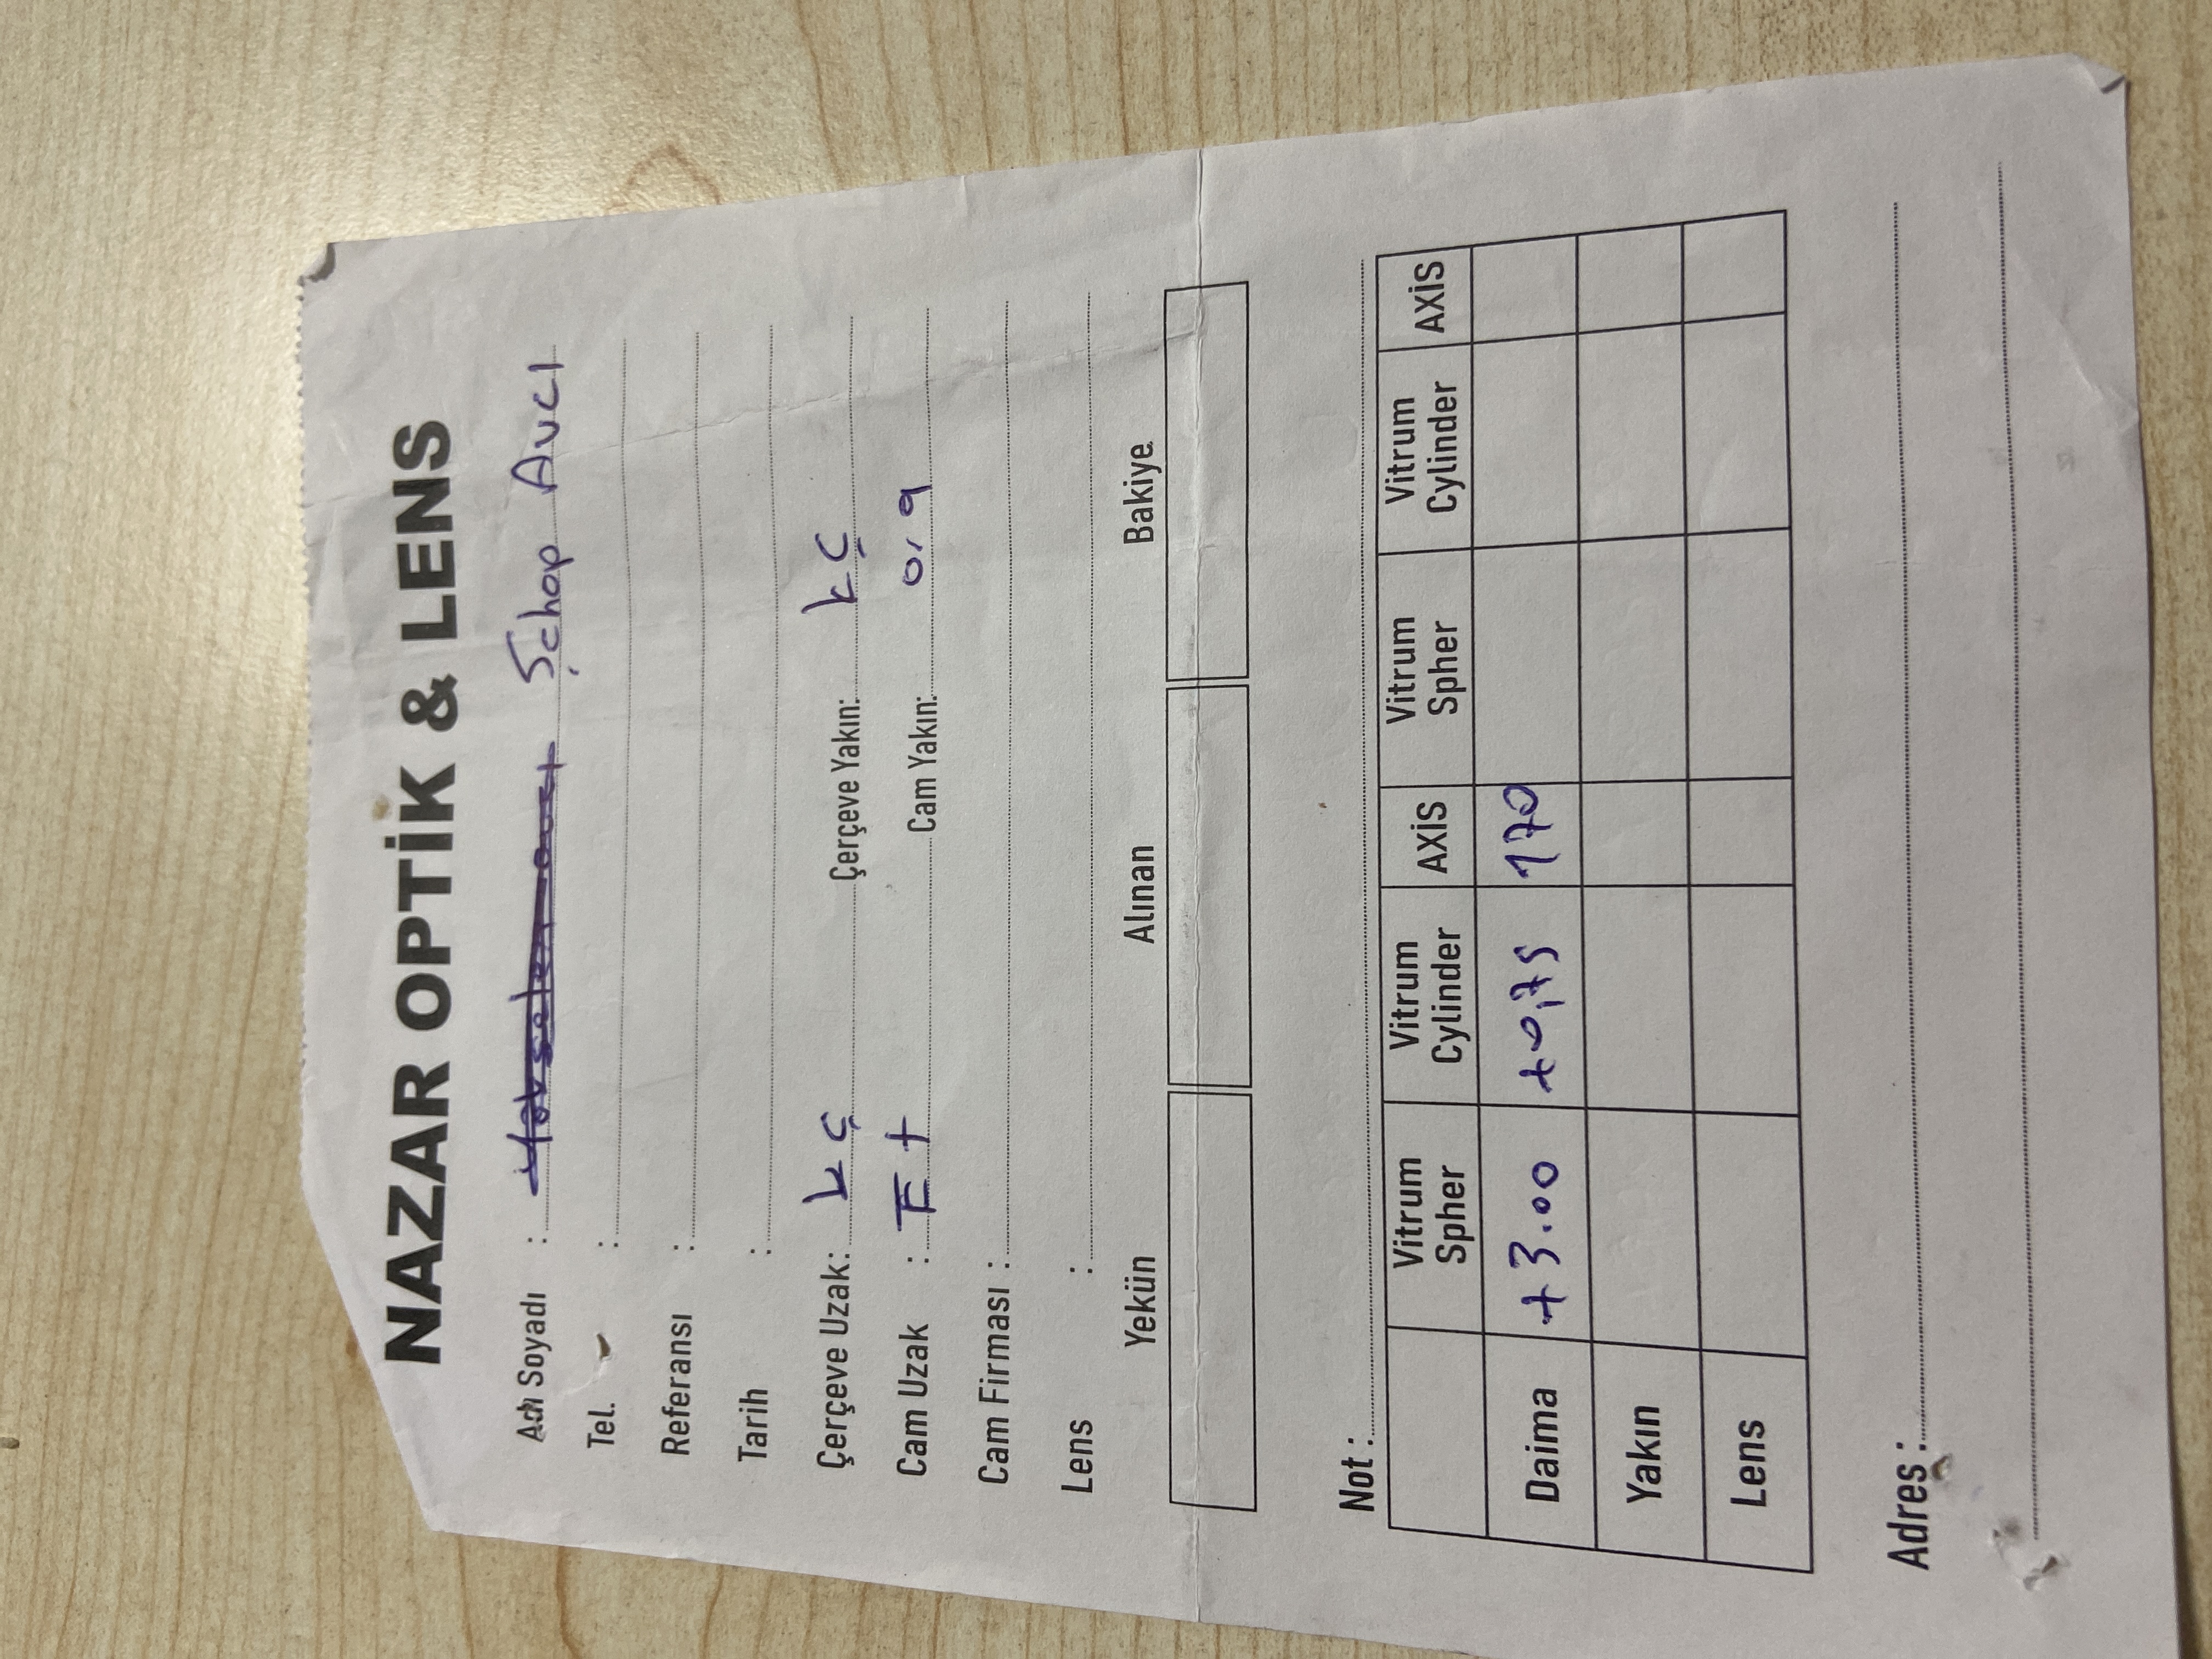 NAZAR OPTİK & LENS
Adı Soyadı : Şchop Avcı
Tel. :
Referansı :
Tarih :
Çerçeve Uzak: kç Çerçeve Yakın: kç
Cam Uzak : E+ Cam Yakın: org
Cam Firması :
Lens :
Yekün Alınan Bakiye
Not :
Vitrum Spher Vitrum Cylinder AXİS Vitrum Spher Vitrum Cylinder AXİS
Daima +3.00 +0,75 170
Yakın
Lens
Adres :